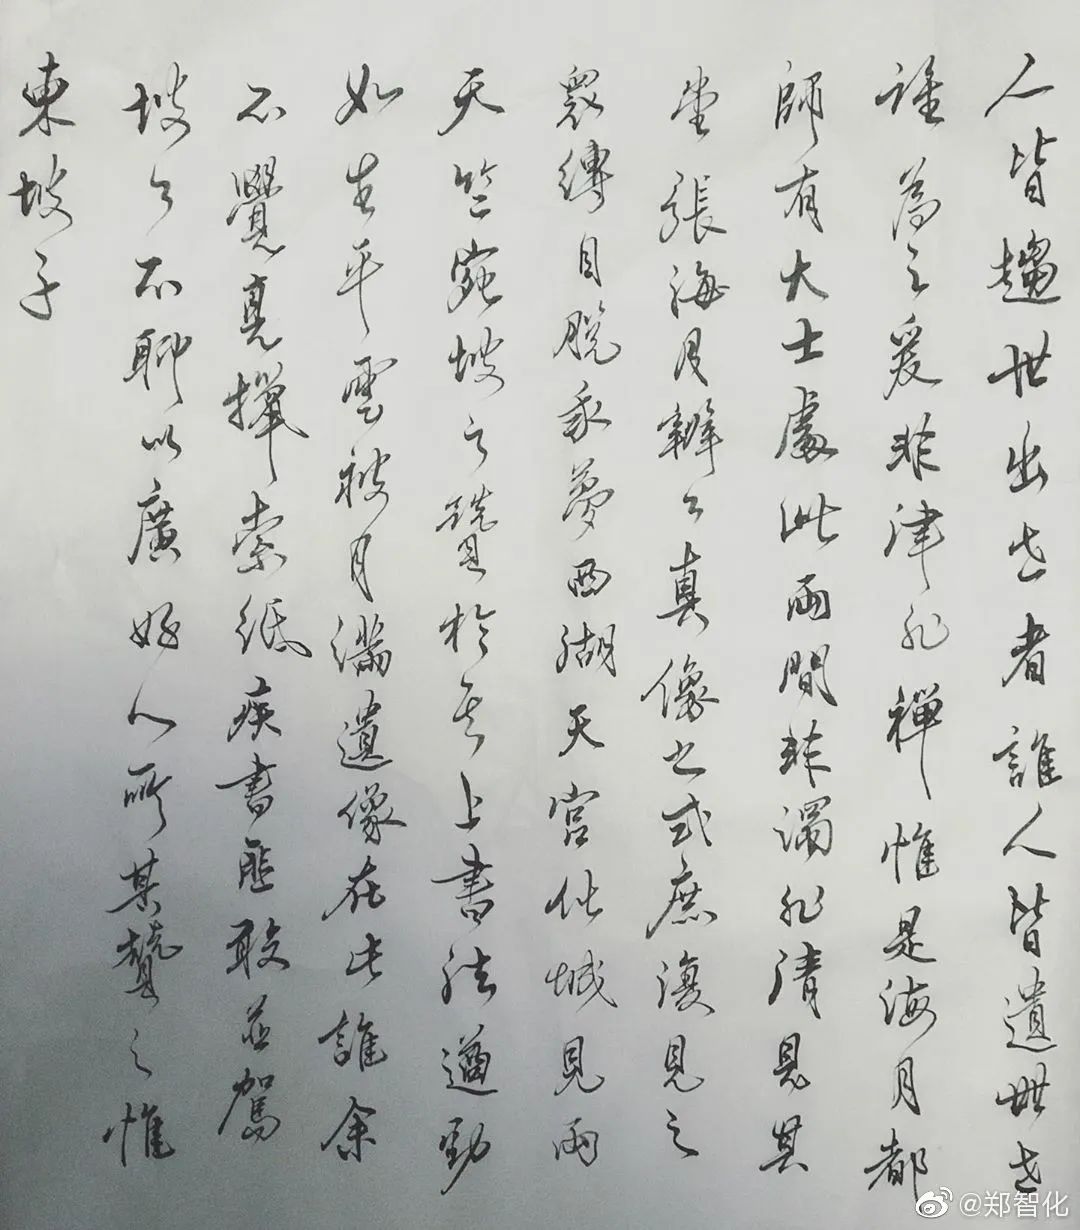 人皆趨世出世者誰人皆遺世世
誰為之爰非律非禪惟是海月都
師有大士處此兩間非濁非清見其
堂張海月辯公真像之式庶復見之
眾縛自脫我夢西湖天宮化城見兩
天竺宛坡之贊於其上書法遒勁
如生平雲披月滿遺像在此誰余
不覺索紙疾書匪敢並駕
坡公不聊以廣好人所其贊之惟
東坡子
@郑智化